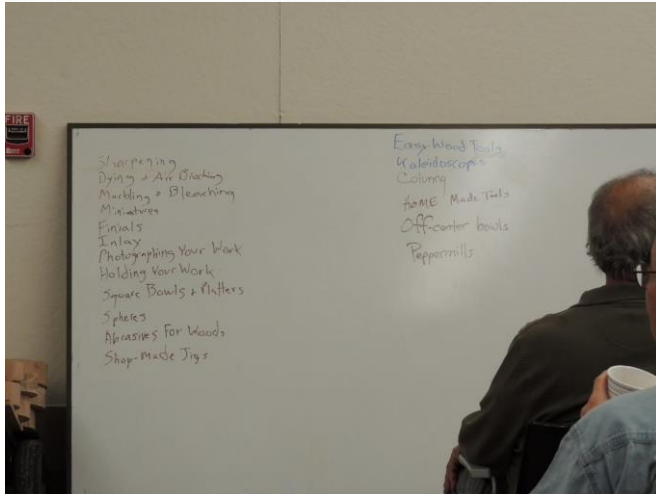 FIRE
Sharpening
Dying + Air Brushing
Marbling + Bleaching
Miniatures
Finials
Inlay
Photographing Your Work
Holding Your Work
Square Bowls + Platters
Spheres
Abrasives For Woods
Shop-Made Jigs
Easy Wood Tools
Kaleidoscopes
HOME Made Tools
Off-center bowls
Peppermills